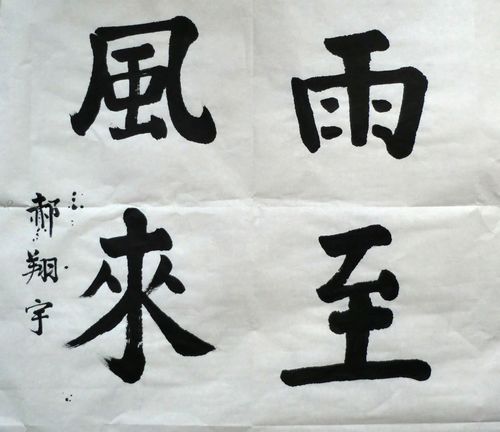 雨至
風來
郝翔宇